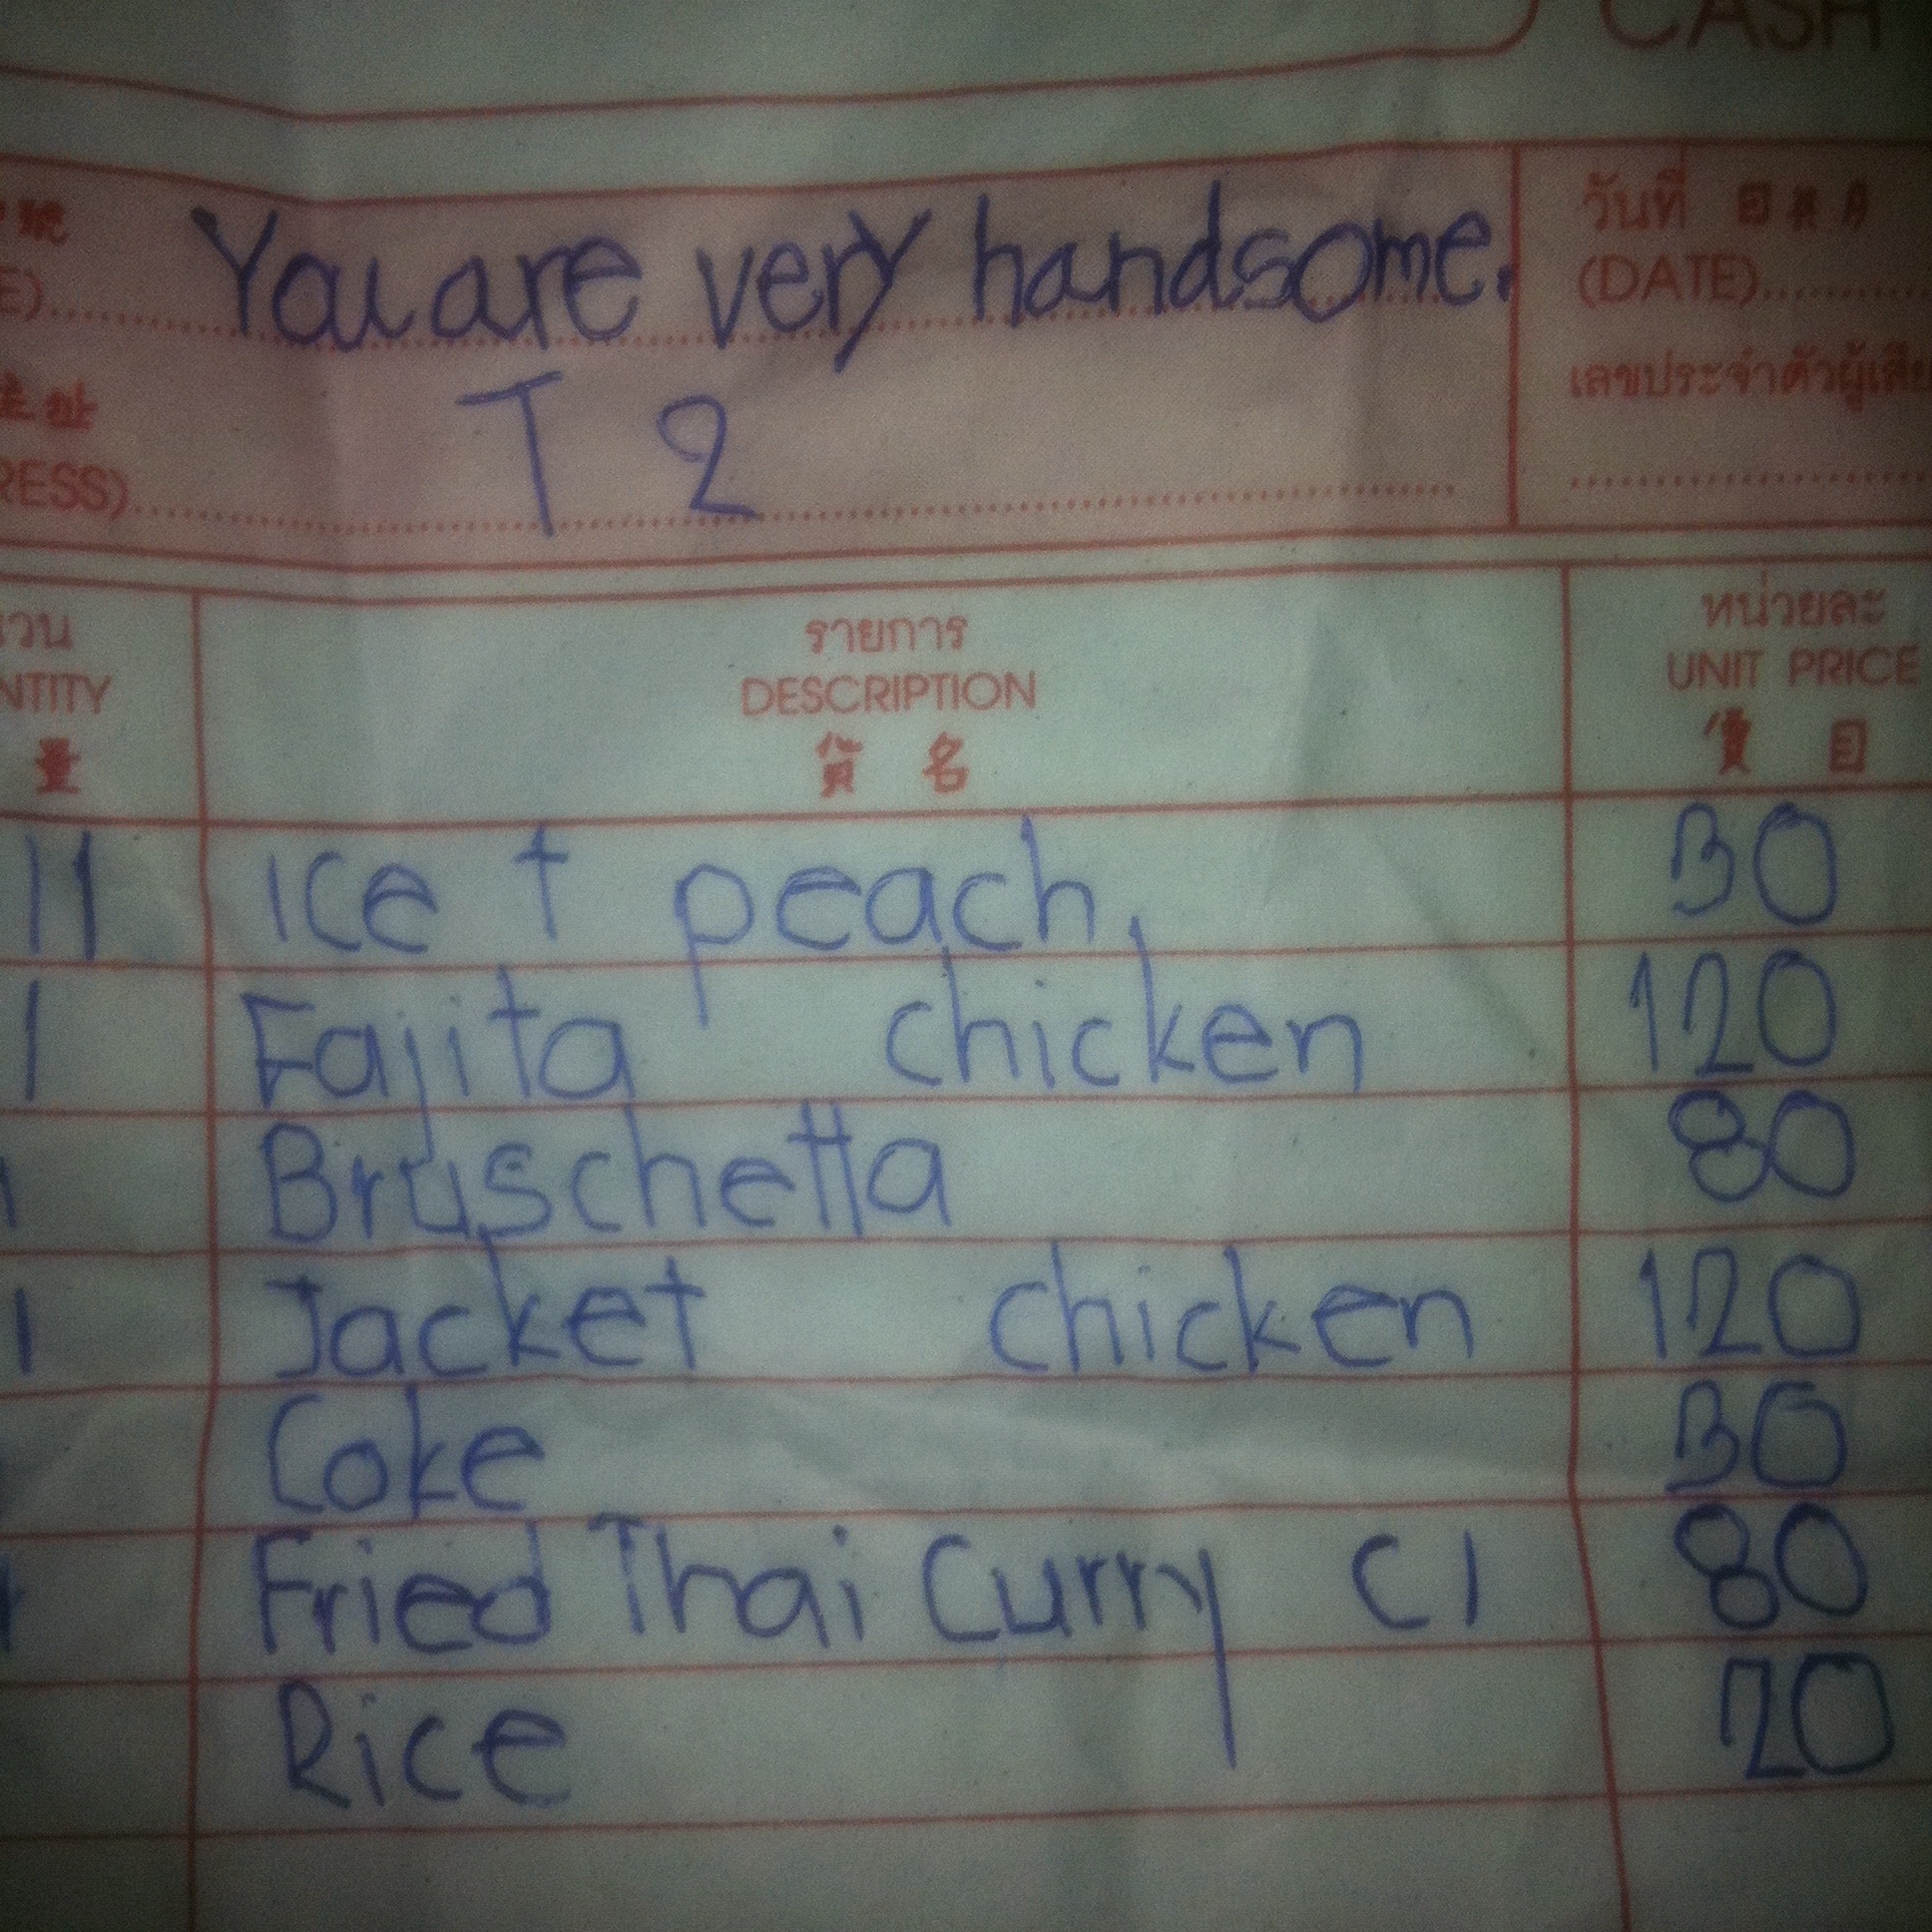 CASH
You are very handsome.
วันที่
(DATE)
T 2
เลขประจำตัวผู้เสีย
RESS)
รายการ
DESCRIPTION
貨 名
หน่วยละ
UNIT PRICE
價 目
NTITY
量
11 Ice t peach 30
1 Fajita chicken 120
1 Bruschetta 80
1 Jacket chicken 120
Coke 30
Fried Thai Curry C1 80
Rice 20